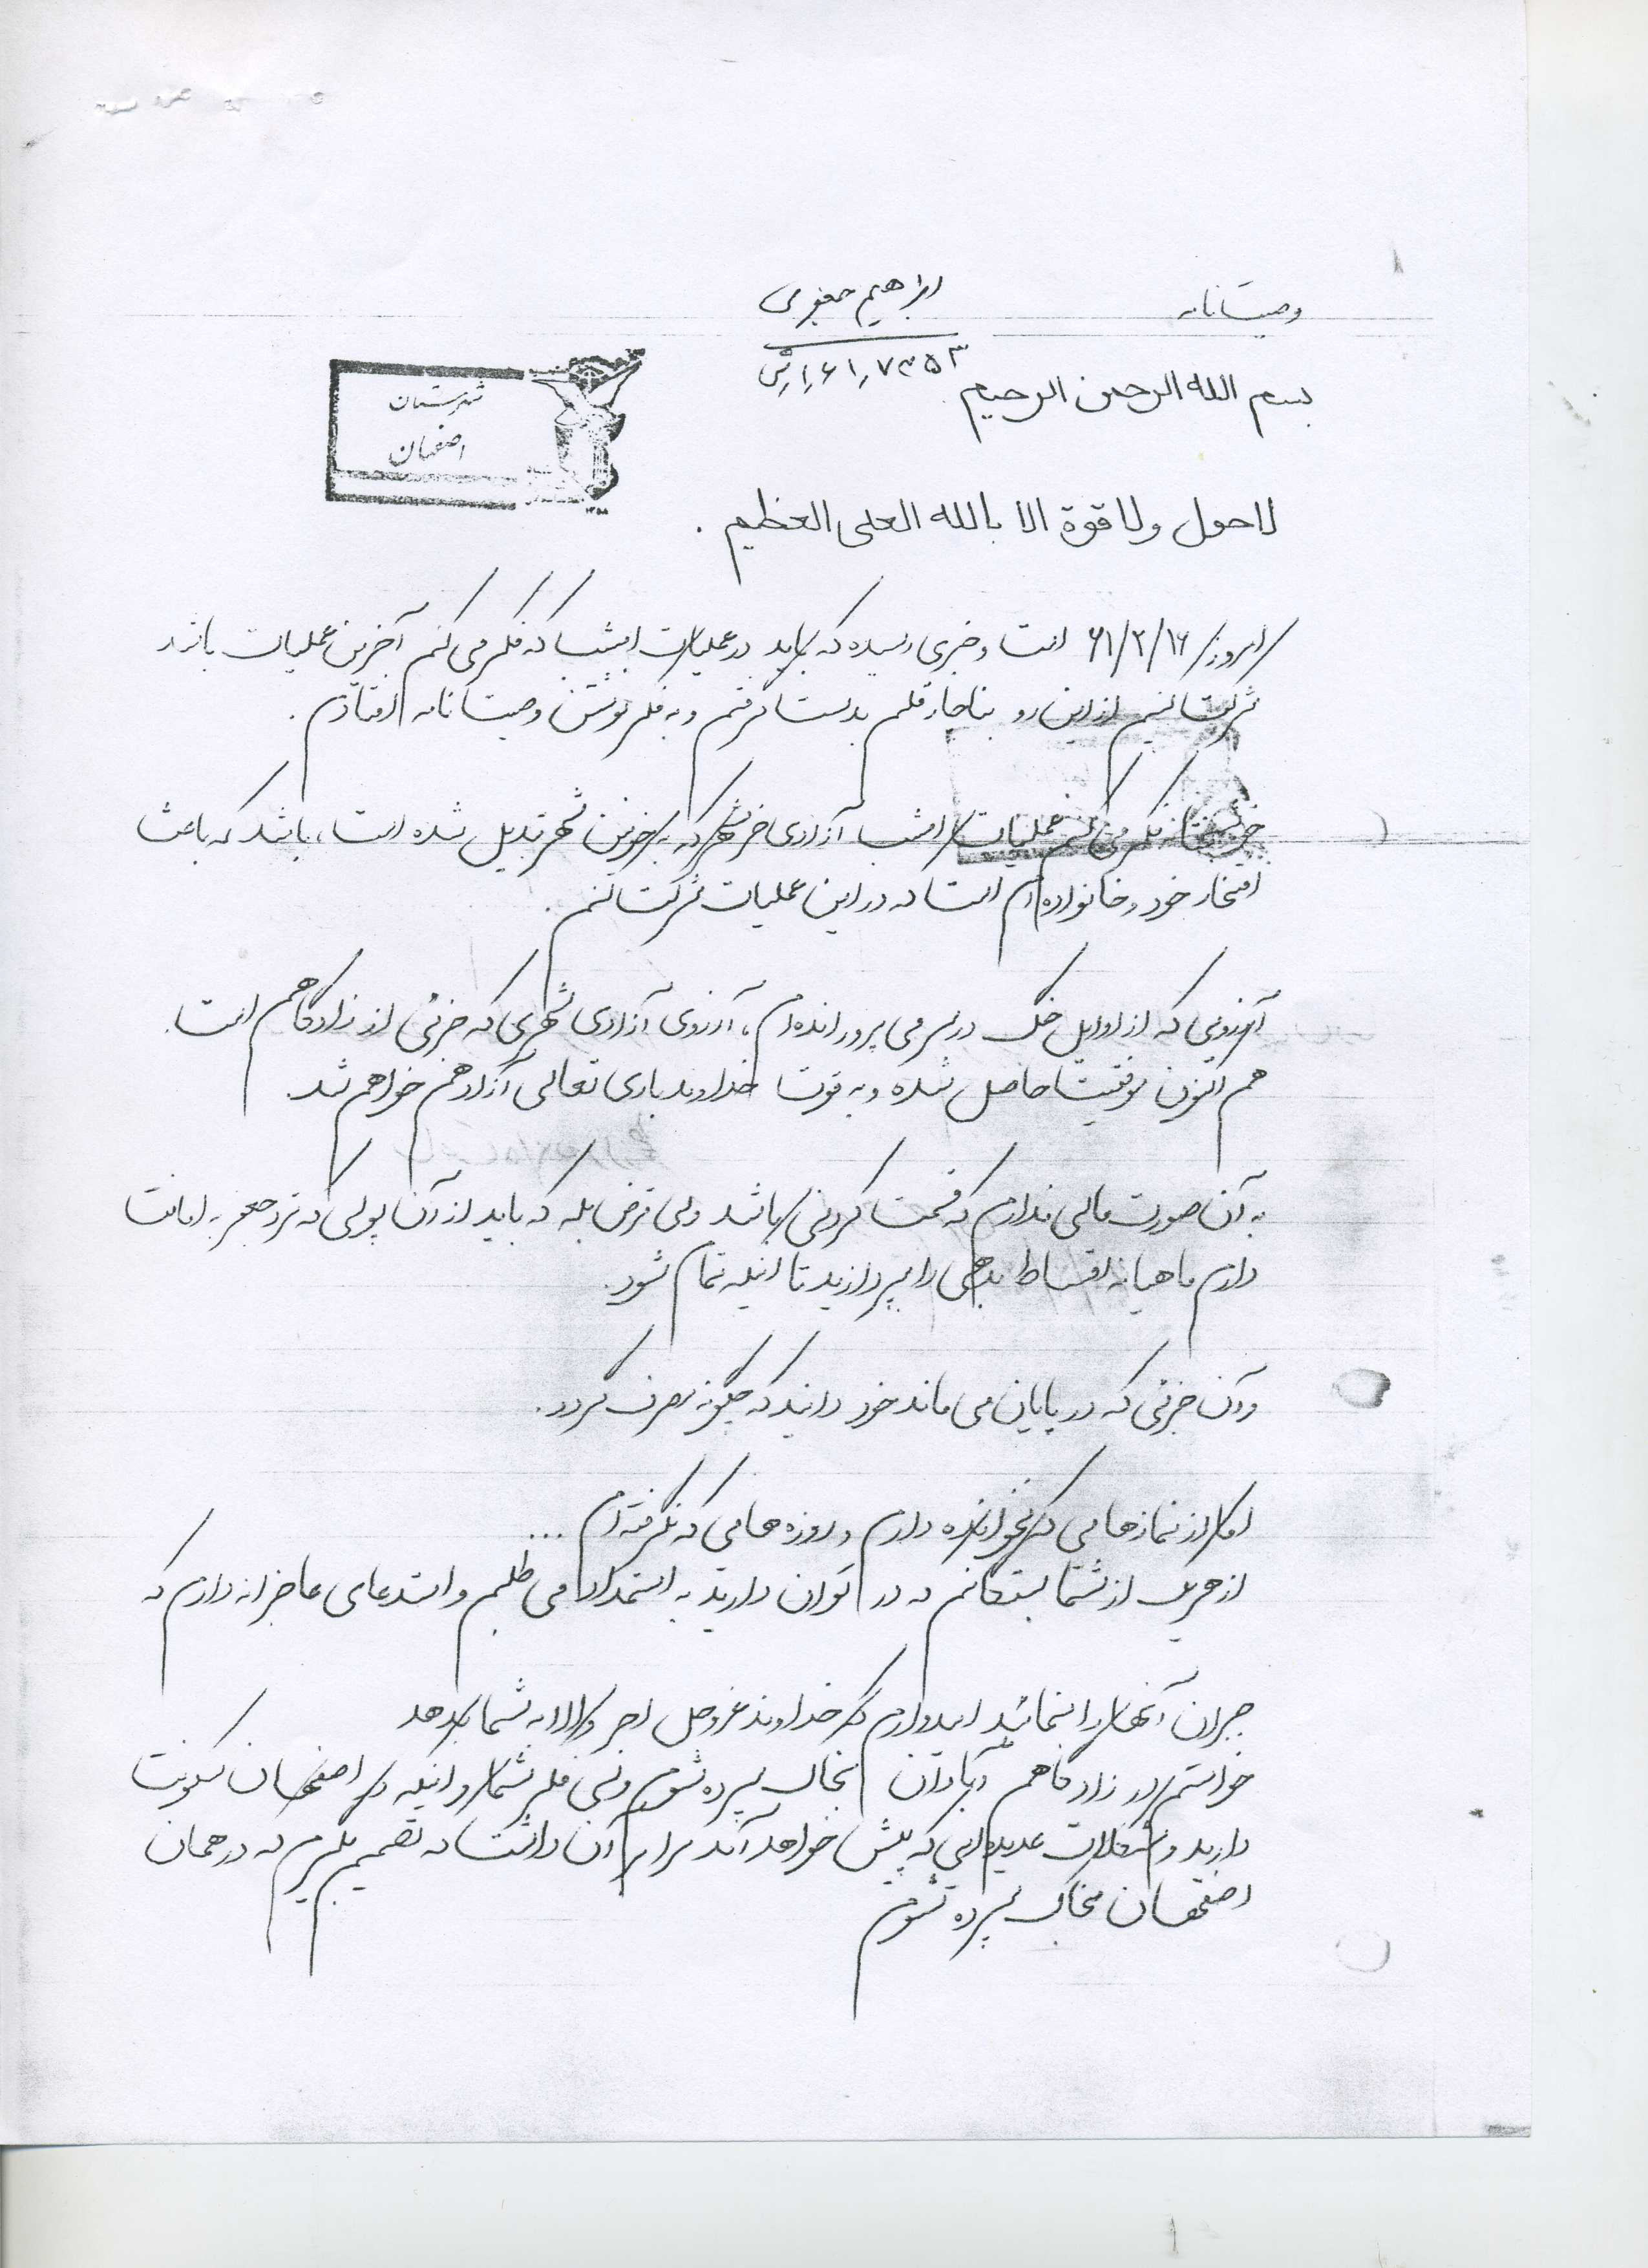 وصیتنامه
ابراهیم جعفری
۷۳۵۳ر۶۱ر۱رش
بسم الله الرحمن الرحیم
شهرستان
اصفهان
لاحول ولا قوة الا بالله العلی العظیم .
امروز ۶۱/۲/۱۶ است و خبری رسیده که باید در عملیات امشب که فکر می کنم آخرین عملیات باشد
شرکت کنیم از این رو بناچار قلم بدست گرفتم و به فکر نوشتن وصیت نامه افتادم .
خوشبختانه فکر می کنم عملیات امشب آزادی خرمشهر که به خونین شهر تبدیل شده است ، باشد که باعث
افتخار خود و خانواده ام است که در این عملیات شرکت کنم .
آرزویی که از اوایل جنگ در سر می پرورانده ام ، آرزوی آزادی شهری که جزئی از زادگاهم است
هم اکنون موقعیت حاصل شده و به قوت خداوند باری تعالی آزاد هم خواهم شد .
به آن صورت مالی ندارم که قسمت کردنی باشد ولی قرض بله که باید از آن پولی که نزد جعفر به امانت
دارم ماهیانه اقساط بدهی را بپردازید تا اینکه تمام شود .
و آن جزئی که در پایان می ماند خود دانید که چگونه صرف گردد .
اما از نمازهایی که نخوانده دارم و روزه هایی که نگرفته ام ...
از هریک از شما بستگانم که در توان دارید به استمداد می طلبم و استدعای عاجزانه دارم که
جبران آنها را بنمائید امیدوارم که خداوند عزوجل اجر والا به شما بدهد
خواستم در زادگاهم آبادان بخاک سپرده شوم ولی فکر شما و اینکه در اصفهان سکونت
دارید و مشکلات عدیده ایی که پیش خواهد آمد مرا بر آن داشت که تصمیم بگیرم که در همان
اصفهان بخاک سپرده شوم